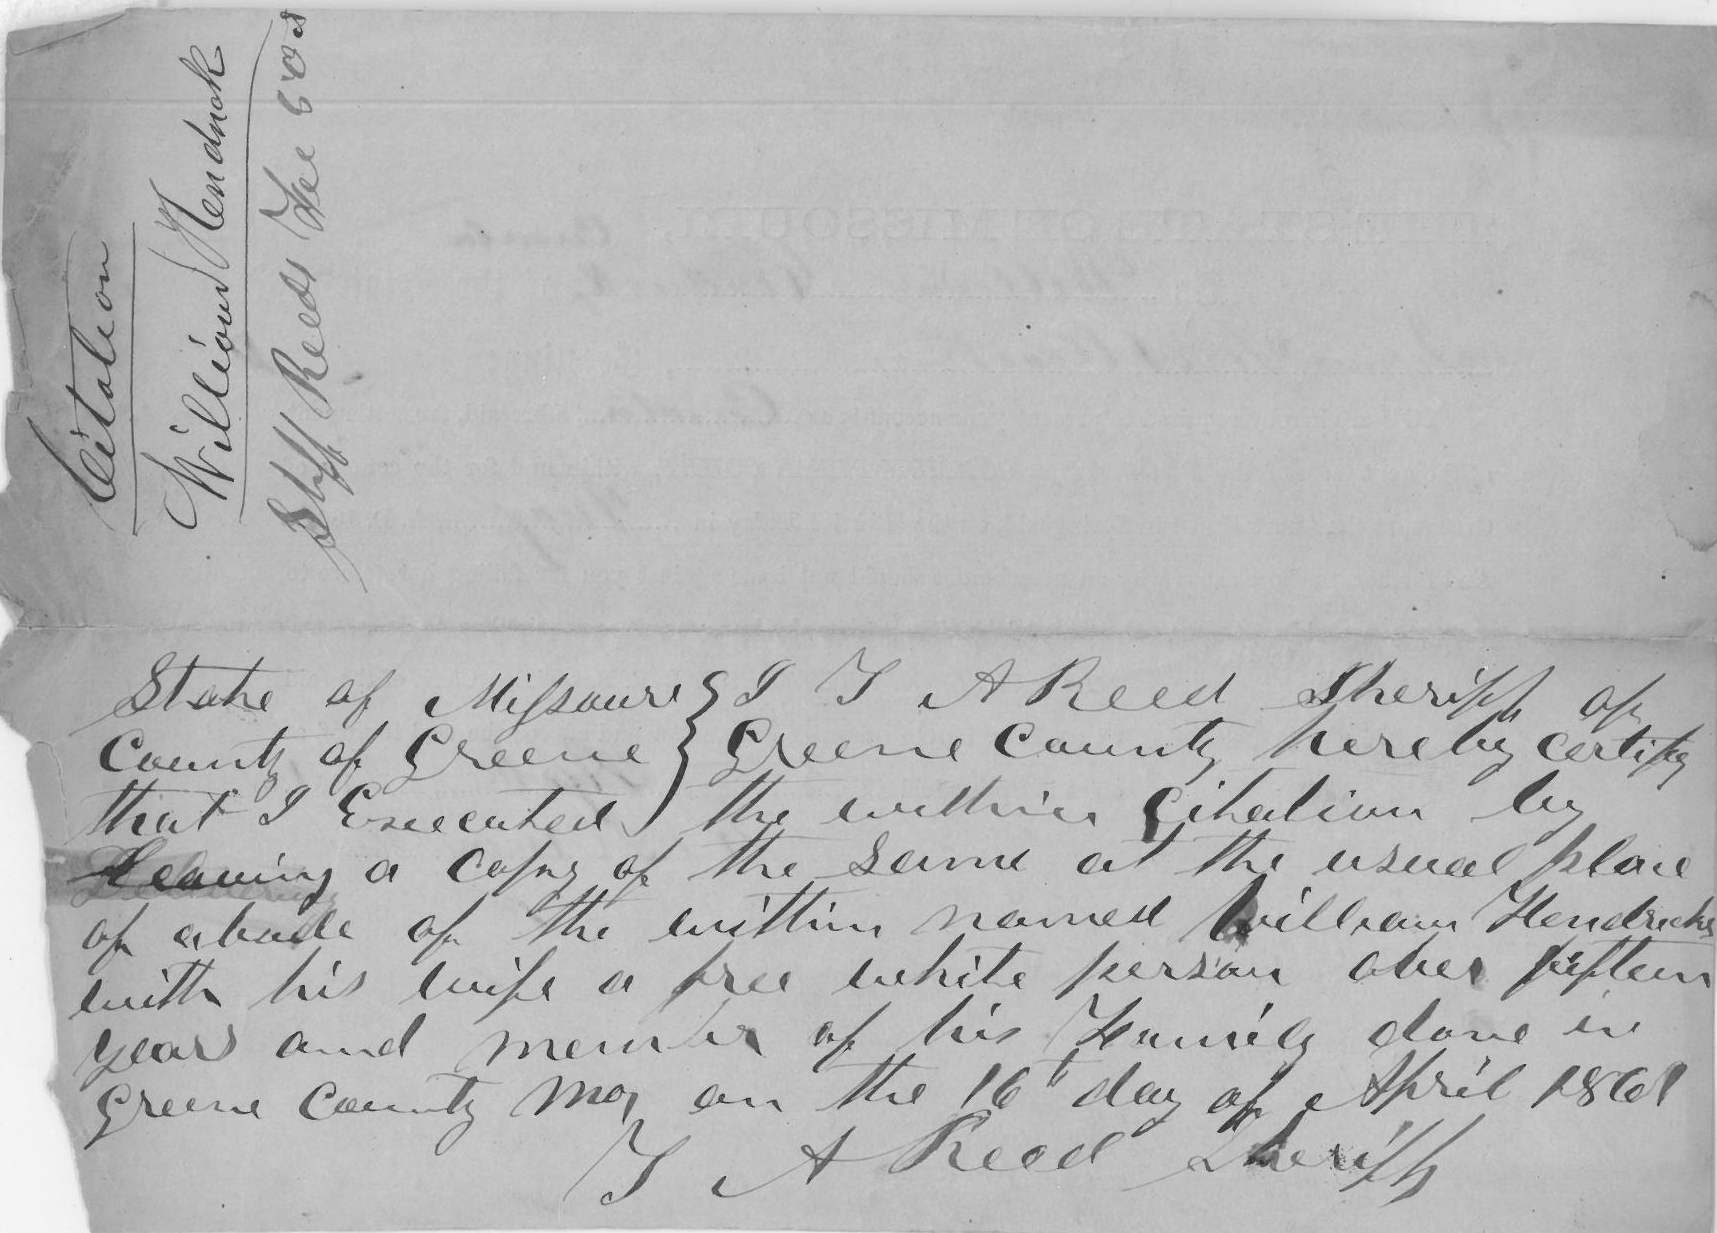 Citation
William Hendrick
Shff Reeds Fee 50cts
State of Missouri } I T A Reed Sheriff of
County of Greene } Greene County hereby certify
that I Executed } the within Citation by
Leaving a copy of the same at the usual place
of abode of the within named William Hendricks
with his wife a free white person over fifteen
years and member of his Family done in
Greene County Mo, on the 16th day of April 1861
T A Reed Sheriff